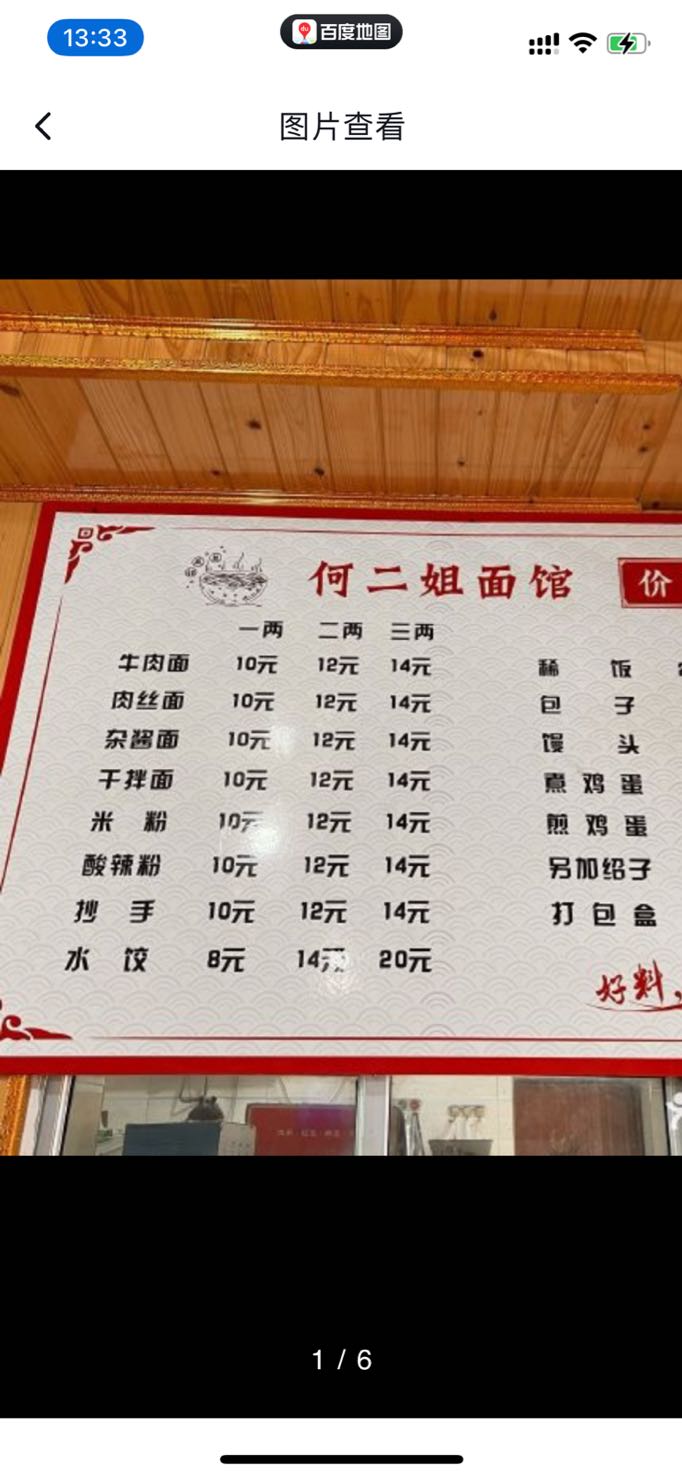 13:33
百度地图
图片查看
何二姐面馆 价
一两 二两 三两
牛肉面 10元 12元 14元
肉丝面 10元 12元 14元
杂酱面 10元 12元 14元
干拌面 10元 12元 14元
米粉 10元 12元 14元
酸辣粉 10元 12元 14元
抄手 10元 12元 14元
水饺 8元 14元 20元
稀饭
包子
馒头
煮鸡蛋
煎鸡蛋
另加绍子
打包盒
好料,
1 / 6